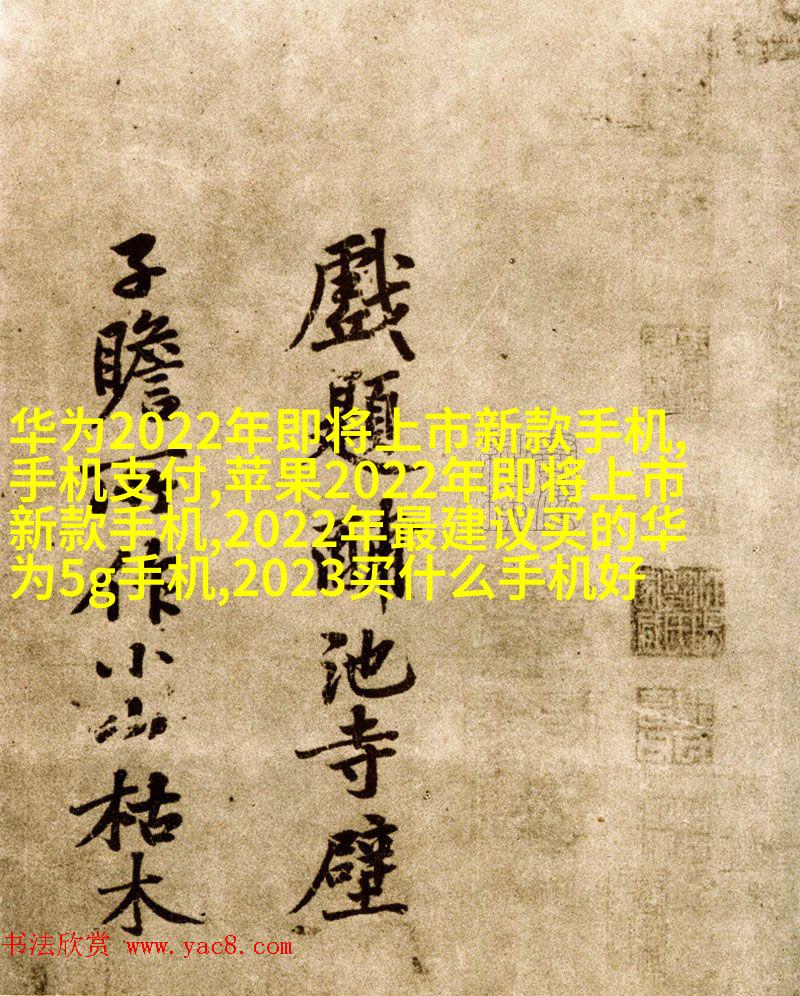 戲題池寺壁
子瞻作小山枯木
华为2022年即将上市新款手机,
手机支付,苹果2022年即将上市
新款手机,2022年最建议买的华
为5g手机,2023买什么手机好
书法欣赏 www.yac8.com